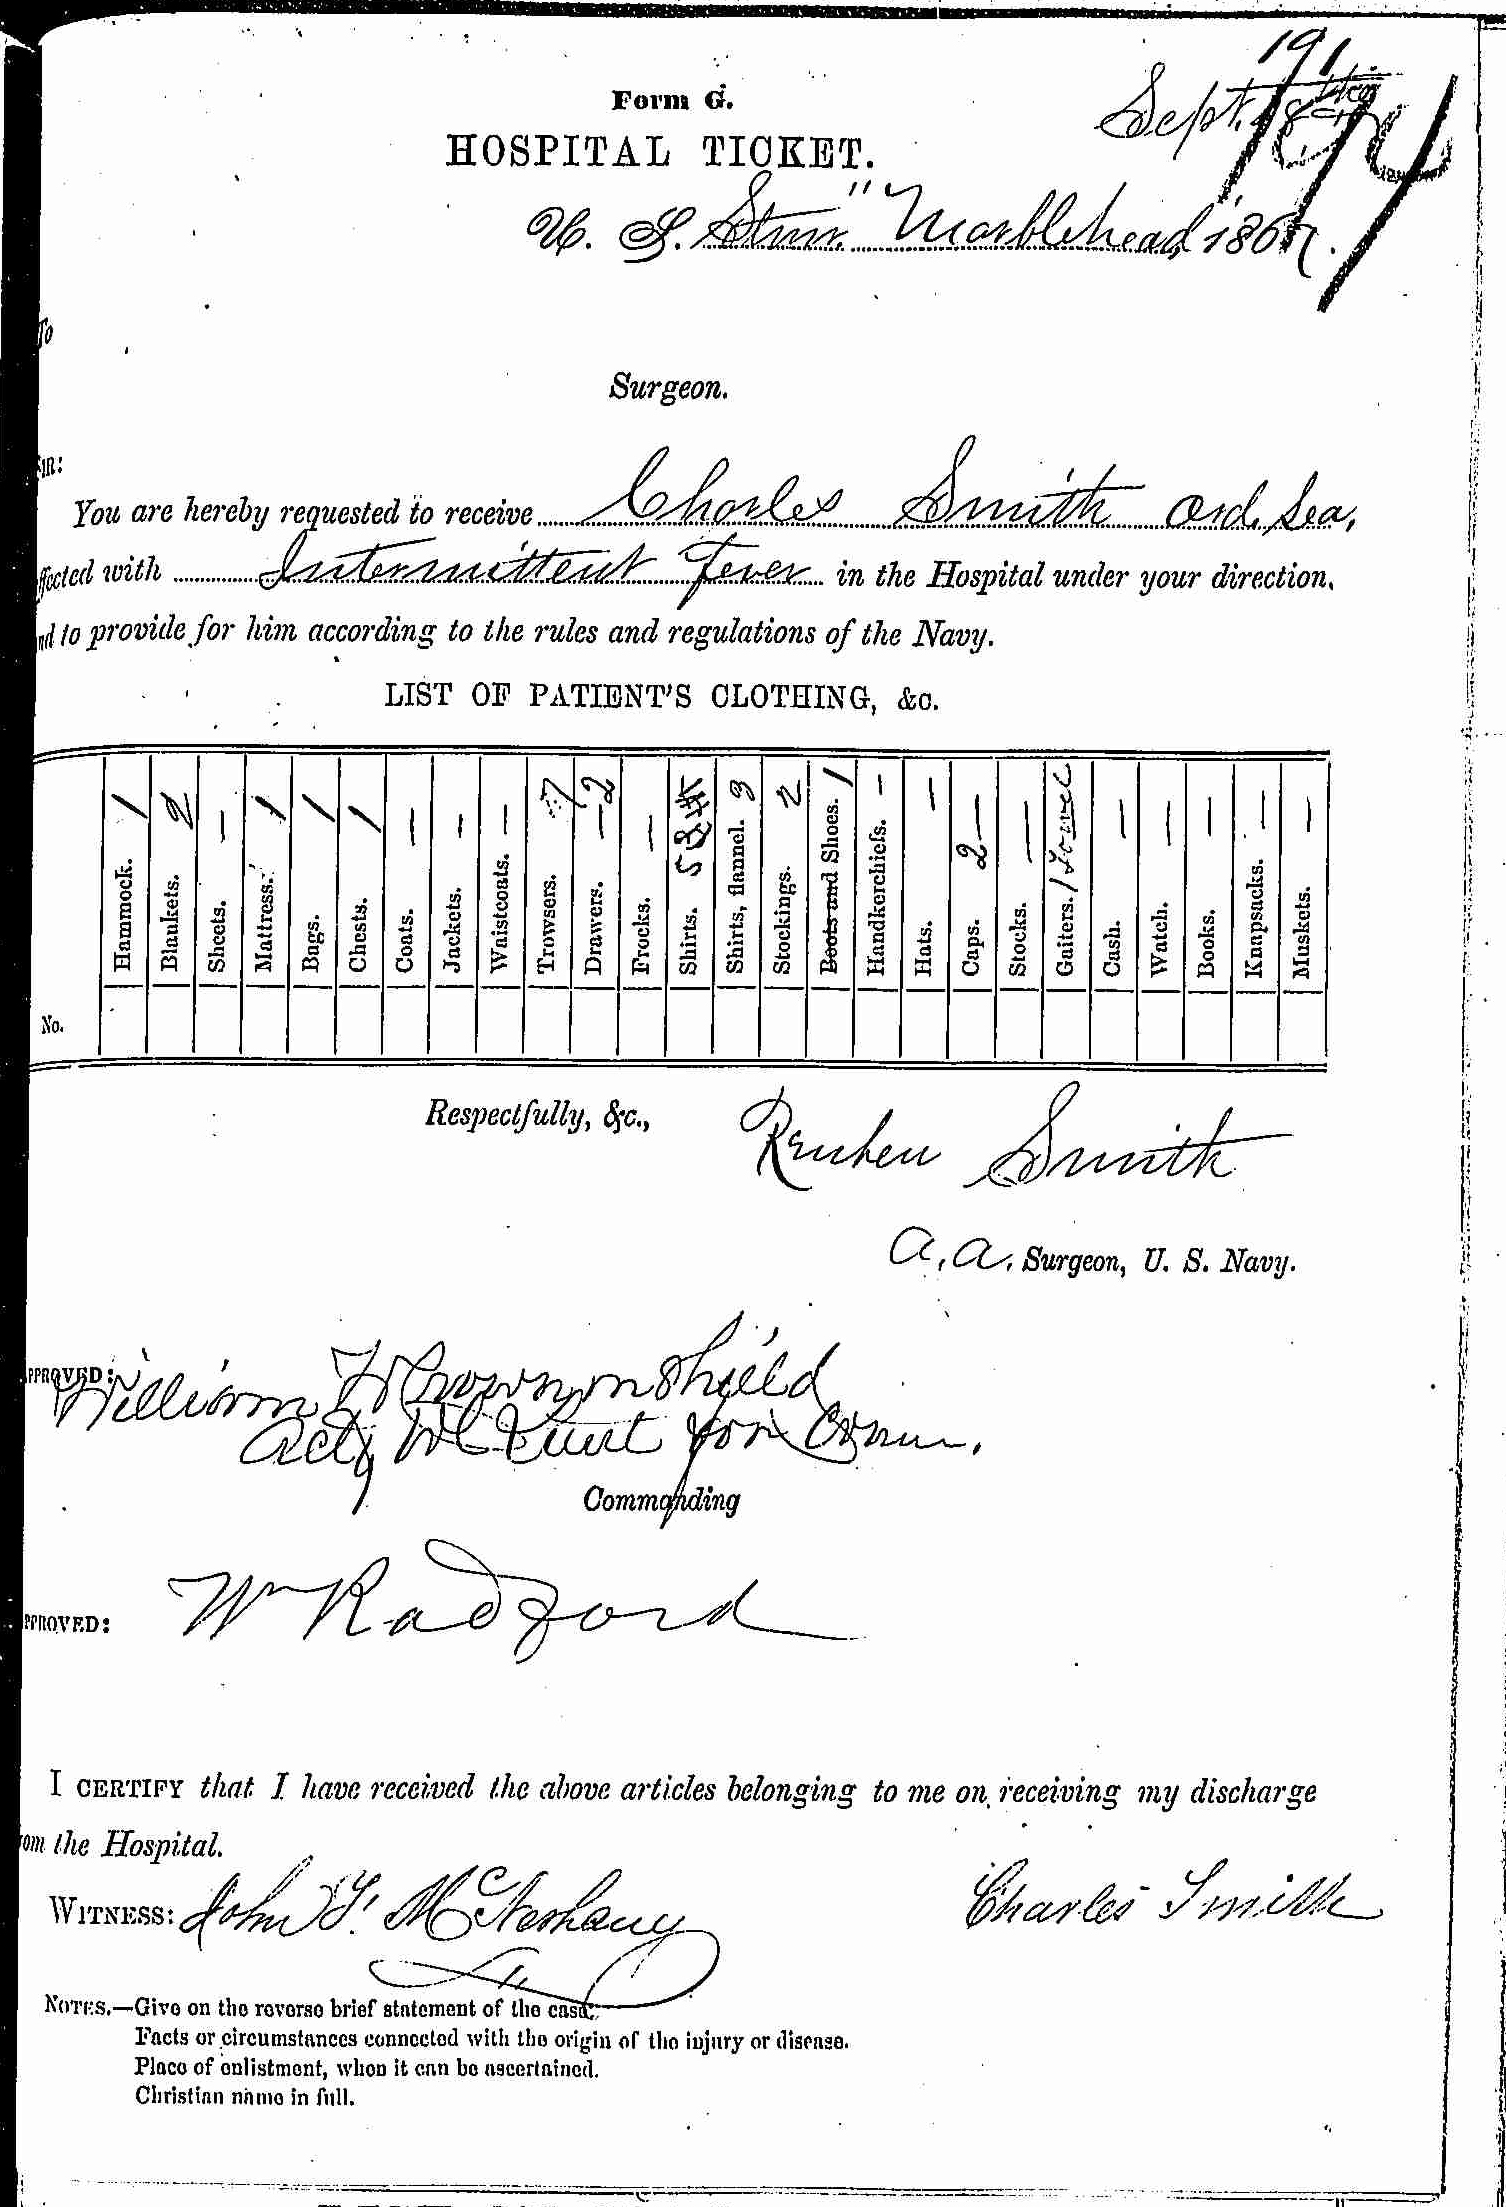 191
Form G.
Sept. 18th
194
HOSPITAL TICKET.
U. S. Stmr. "Marblehead," 1864.
To
Surgeon.
SIR:
You are hereby requested to receive Charles Smith Ord. Sea,
ffected with Intermittent Fever in the Hospital under your direction,
nd to provide for him according to the rules and regulations of the Navy.
LIST OF PATIENT'S CLOTHING, &c.
Hammock. 1
Blankets. 2
Sheets. —
Mattress. 1
Bags. 1
Chests. 1
Coats. —
Jackets. —
Waistcoats. —
Trowsers. 7
Drawers. —2
Frocks. —
Shirts. 5
Shirts, flannel. 3
Stockings. 2
Boots and Shoes. 1
Handkerchiefs. —
Hats. —
Caps. 2—
Stocks. —
Gaiters. 1 Towel
Cash. —
Watch. —
Books. —
Knapsacks. —
Muskets. —
No.
Respectfully, &c.,
Reuben Smith
A. A. Surgeon, U. S. Navy.
PPROVED:
William
Actg for Comm.
Commanding
PPROVED: Wm Radford
I CERTIFY that I have received the above articles belonging to me on receiving my discharge
rom the Hospital.
WITNESS: John F. Charles Smith
NOTES.—Give on the reverse brief statement of the case.
Facts or circumstances connected with the origin of the injury or disease.
Place of enlistment, when it can be ascertained.
Christian name in full.